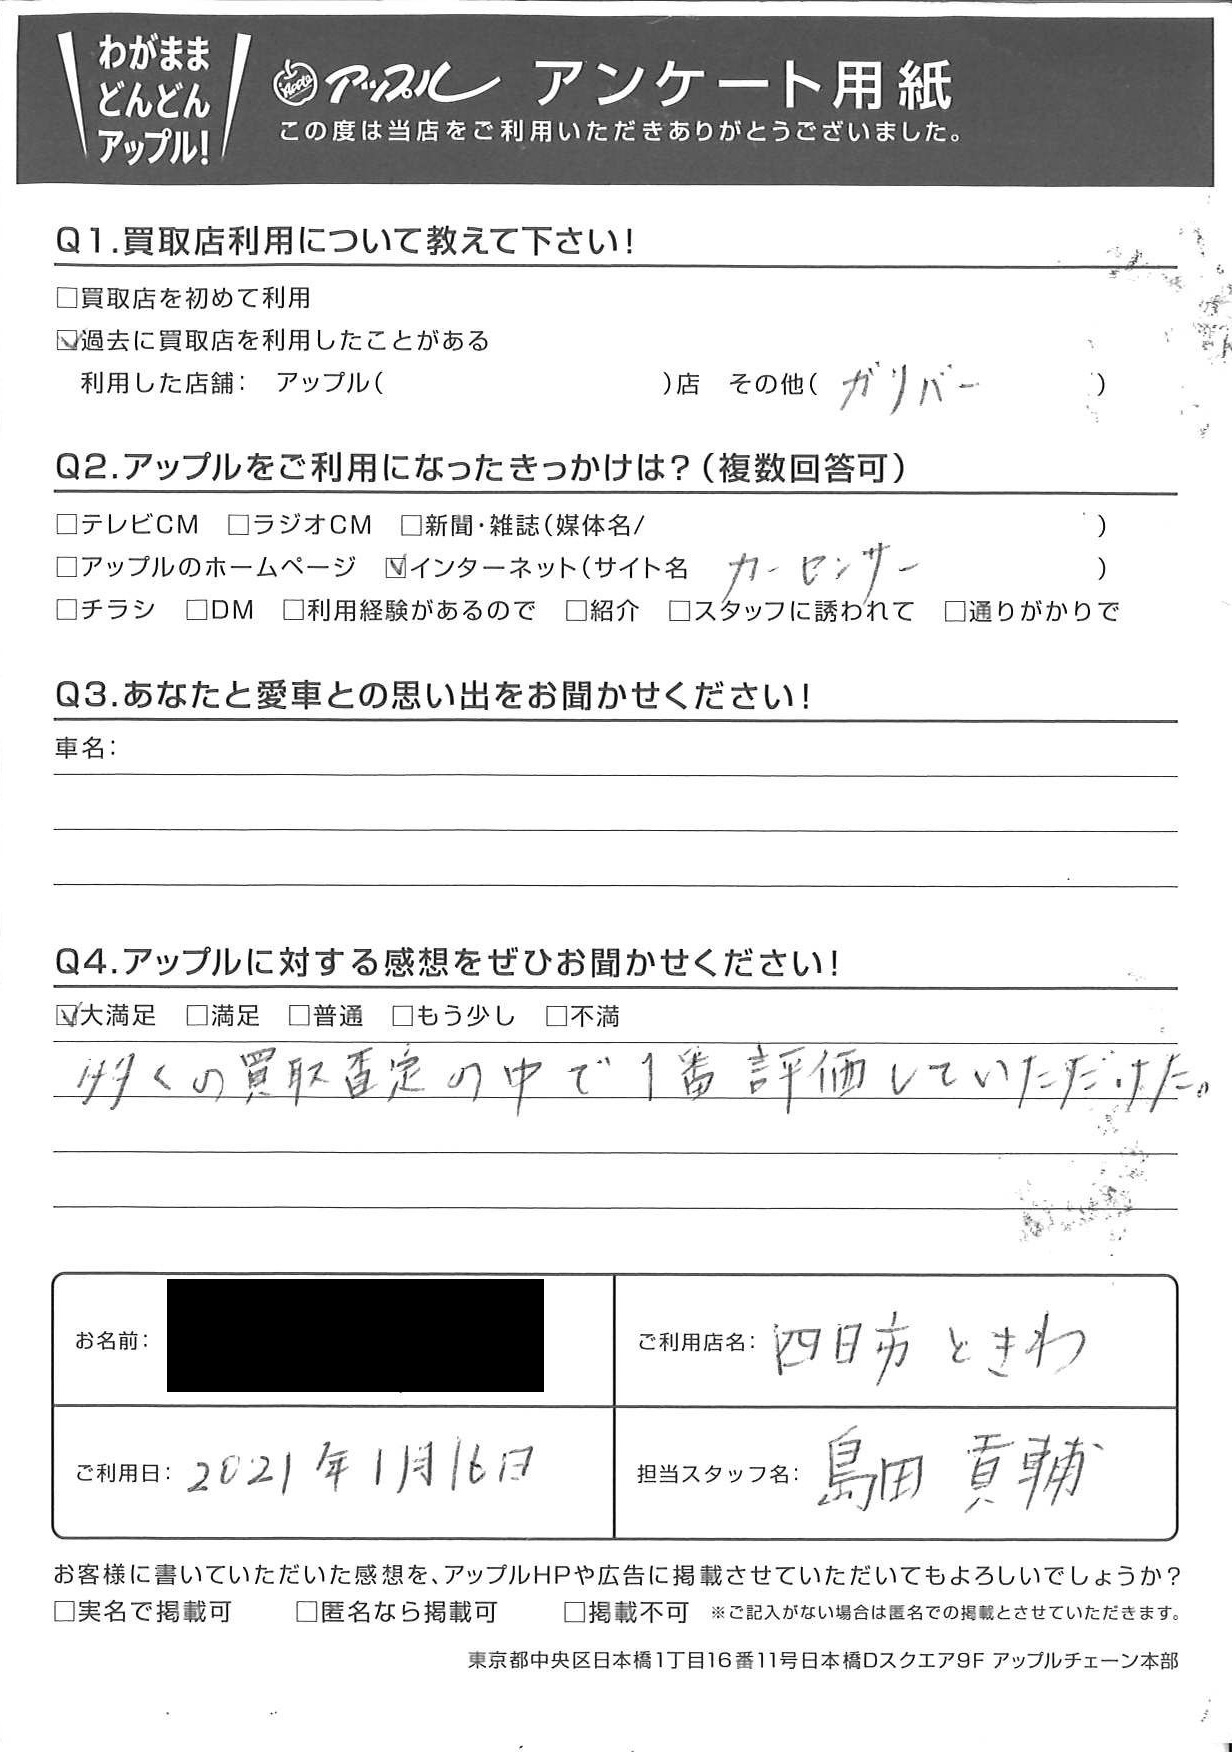 わがまま
どんどん
アップル!
Apple アップル アンケート用紙
この度は当店をご利用いただきありがとうございました。
Q1.買取店利用について教えて下さい!
□買取店を初めて利用
☑過去に買取店を利用したことがある
利用した店舗: アップル( )店 その他( ガリバー )
Q2.アップルをご利用になったきっかけは?(複数回答可)
□テレビCM □ラジオCM □新聞・雑誌(媒体名/ )
□アップルのホームページ ☑インターネット(サイト名 カーセンサー )
□チラシ □DM □利用経験があるので □紹介 □スタッフに誘われて □通りがかりで
Q3.あなたと愛車との思い出をお聞かせください!
車名:
Q4.アップルに対する感想をぜひお聞かせください!
☑大満足 □満足 □普通 □もう少し □不満
多くの買取査定の中で1番評価していただけた。
お名前:
ご利用店名: 四日市ときわ
ご利用日: 2021年1月16日
担当スタッフ名: 島田 貢輔
お客様に書いていただいた感想を、アップルHPや広告に掲載させていただいてもよろしいでしょうか?
□実名で掲載可 □匿名なら掲載可 □掲載不可 ※ご記入がない場合は匿名での掲載とさせていただきます。
東京都中央区日本橋1丁目16番11号日本橋Dスクエア9F アップルチェーン本部